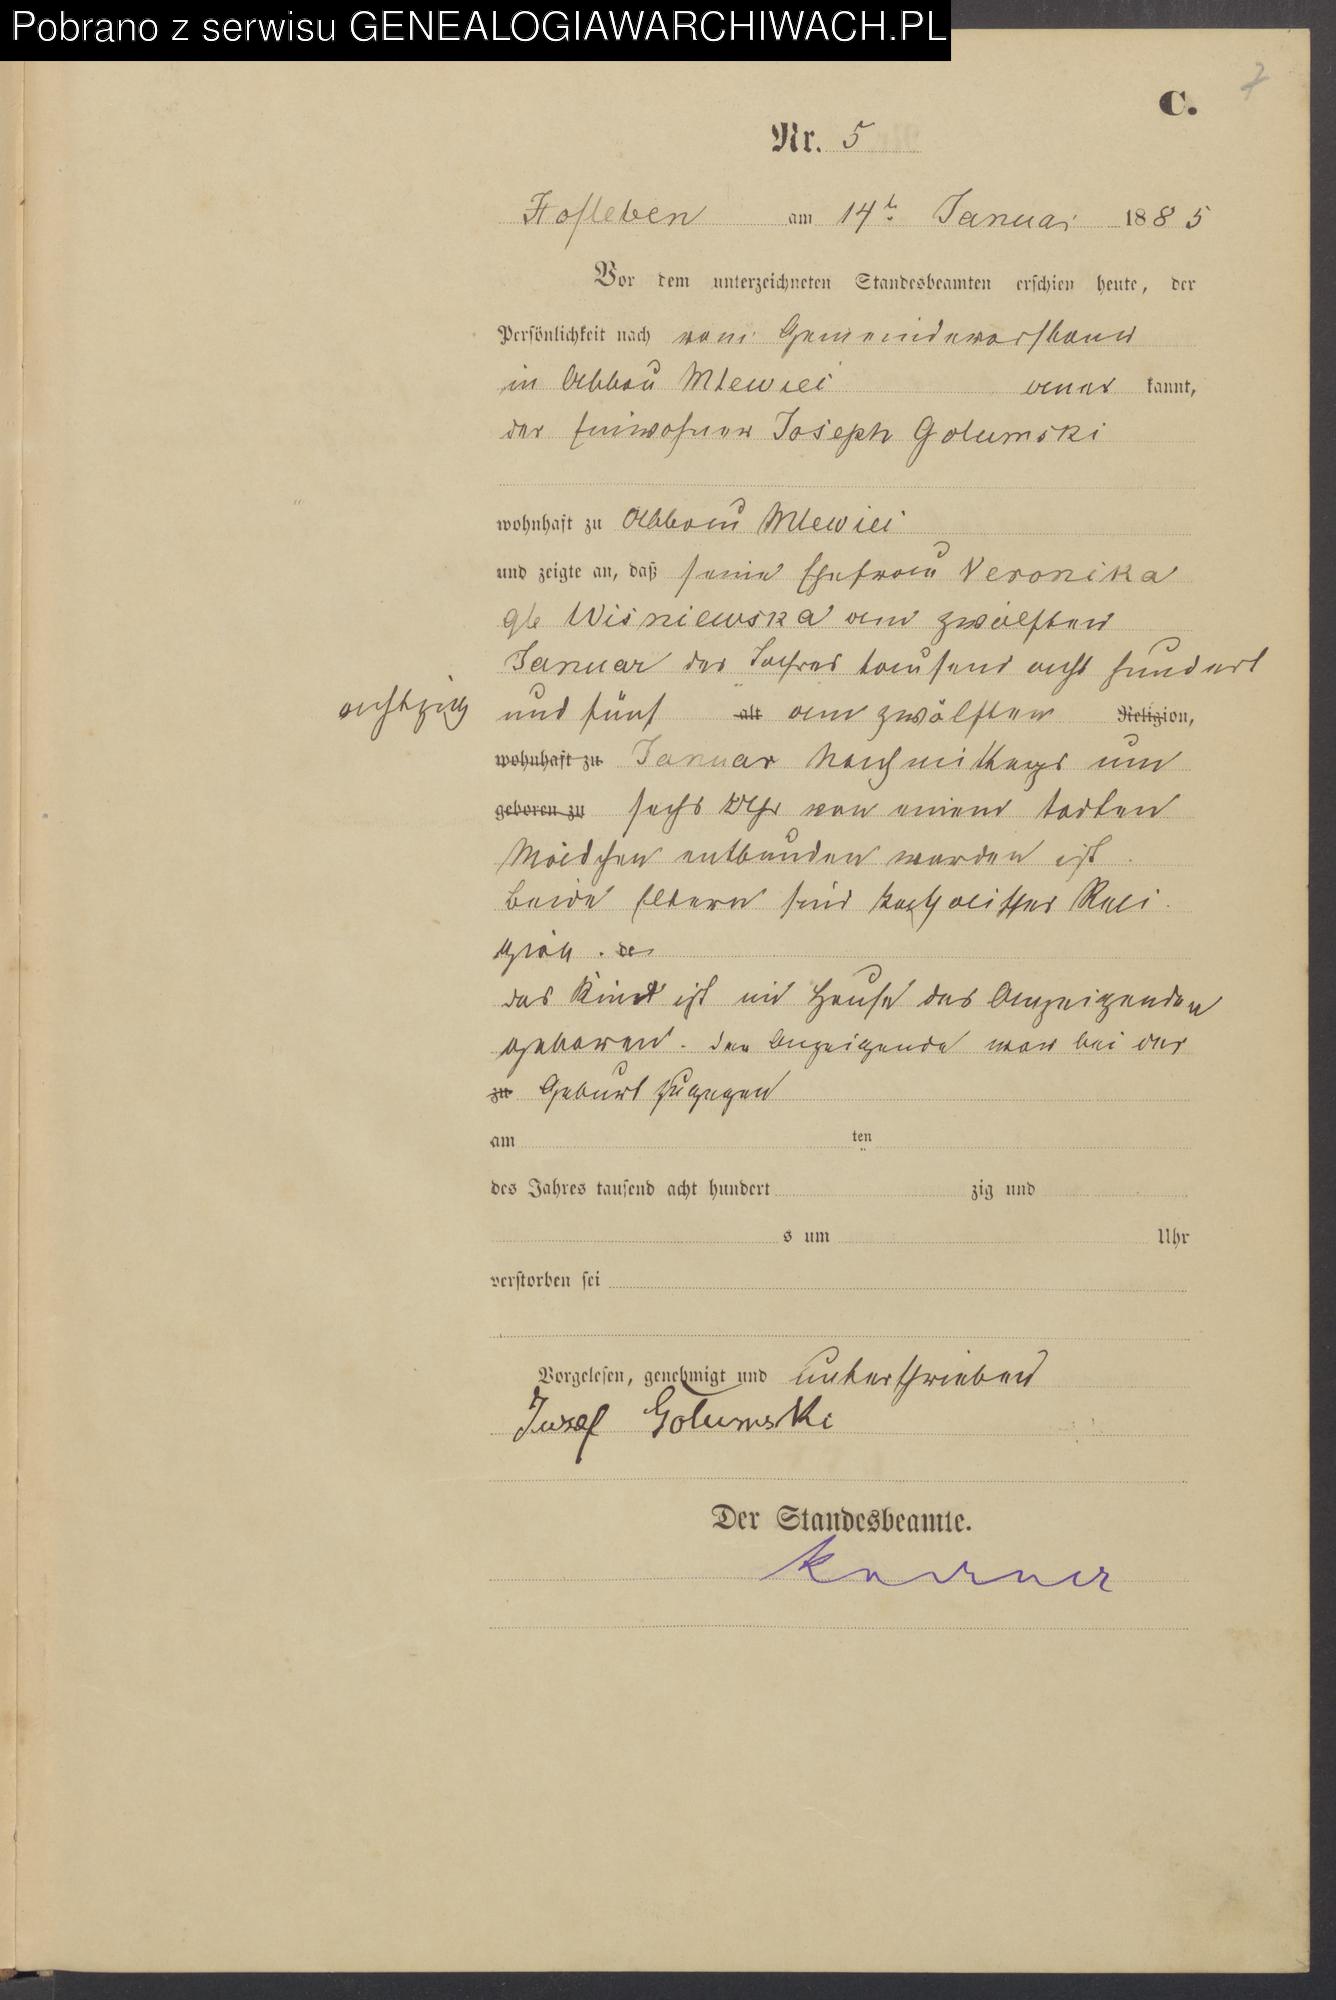 Pobrano z serwisu GENEALOGIAWARCHIWACH.PL
7
C.
Nr. 5
Hofleben am 14t Januar 1885
Vor dem unterzeichneten Standesbeamten erschien heute, der
Persönlichkeit nach vom Gemeindevorstand
in Abbau Mlewiec aner kannt,
der Einwohner Joseph Golumski
wohnhaft zu Abbau Mlewiec
und zeigte an, daß seine Ehefrau Veronika
gb Wisniewska am zwölften
Januar des Jahres tausend acht hundert
achtzig und fünf alt am zwölften Religion,
wohnhaft zu Januar Nachmittags um
geboren zu sechs Uhr von einem todten
Mädchen entbunden worden ist.
Beide Eltern sind katholischer Reli
gion.
das Kind ist im Hause des Anzeigenden
geboren. Der Anzeigende war bei der
zu Geburt zugegen
am ten
des Jahres tausend acht hundert zig und
s um Uhr
verstorben sei
Vorgelesen, genehmigt und unterschrieben
Jusef Golumski
Der Standesbeamte.